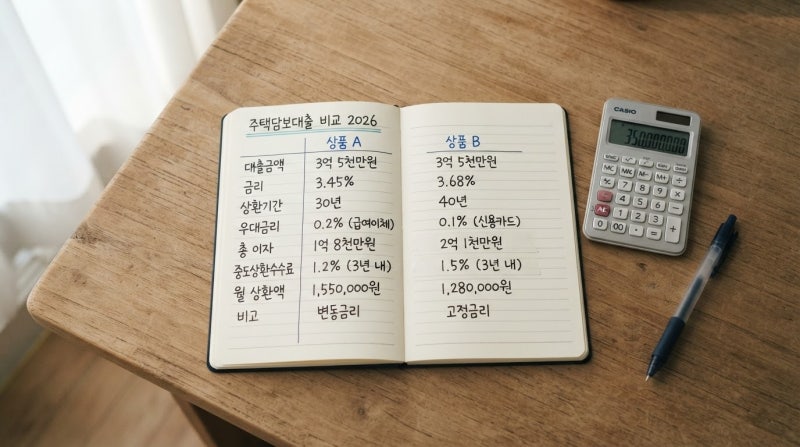 주택담보대출 비교 2026
상품 A 상품 B
대출금액 3억 5천만원 3억 5천만원
금리 3.45% 3.68%
상환기간 30년 40년
우대금리 0.2% (급여이체) 0.1% (신용카드)
총 이자 1억 8천만원 2억 1천만원
중도상환수수료 1.2% (3년 내) 1.5% (3년 내)
월 상환액 1,550,000원 1,280,000원
비고 변동금리 고정금리
CASIO
M+
7 8 9
4 5 6
1 2 3
0 00